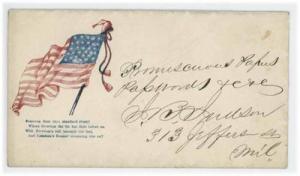 Forever float that standard sheet!
Where breathes the foe but falls before us
With Freedom's soil beneath our feet,
And Freedom's Banner streaming o'er us?
Promiscuous Papers
Passwords &c
Judson
313 Jefferson
Mil.